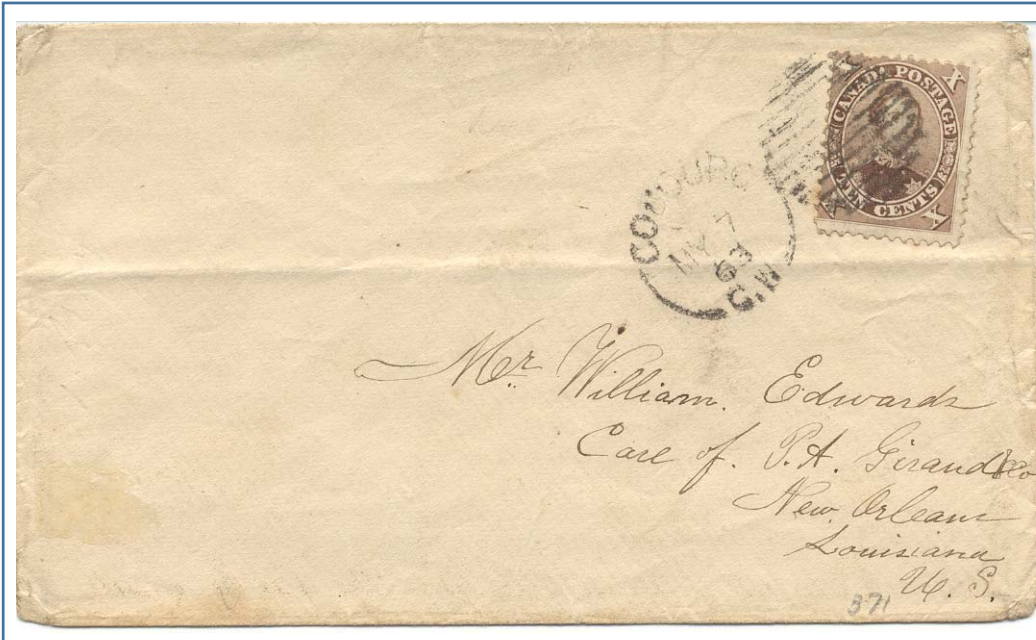 X X
CANADA POSTAGE
TEN CENTS
X X
COBOURG
MY 7
63
C.W
Mr. William. Edwards
Care of. P.A. Girand & Co
New Orleans
Louisiana
U. S.
371